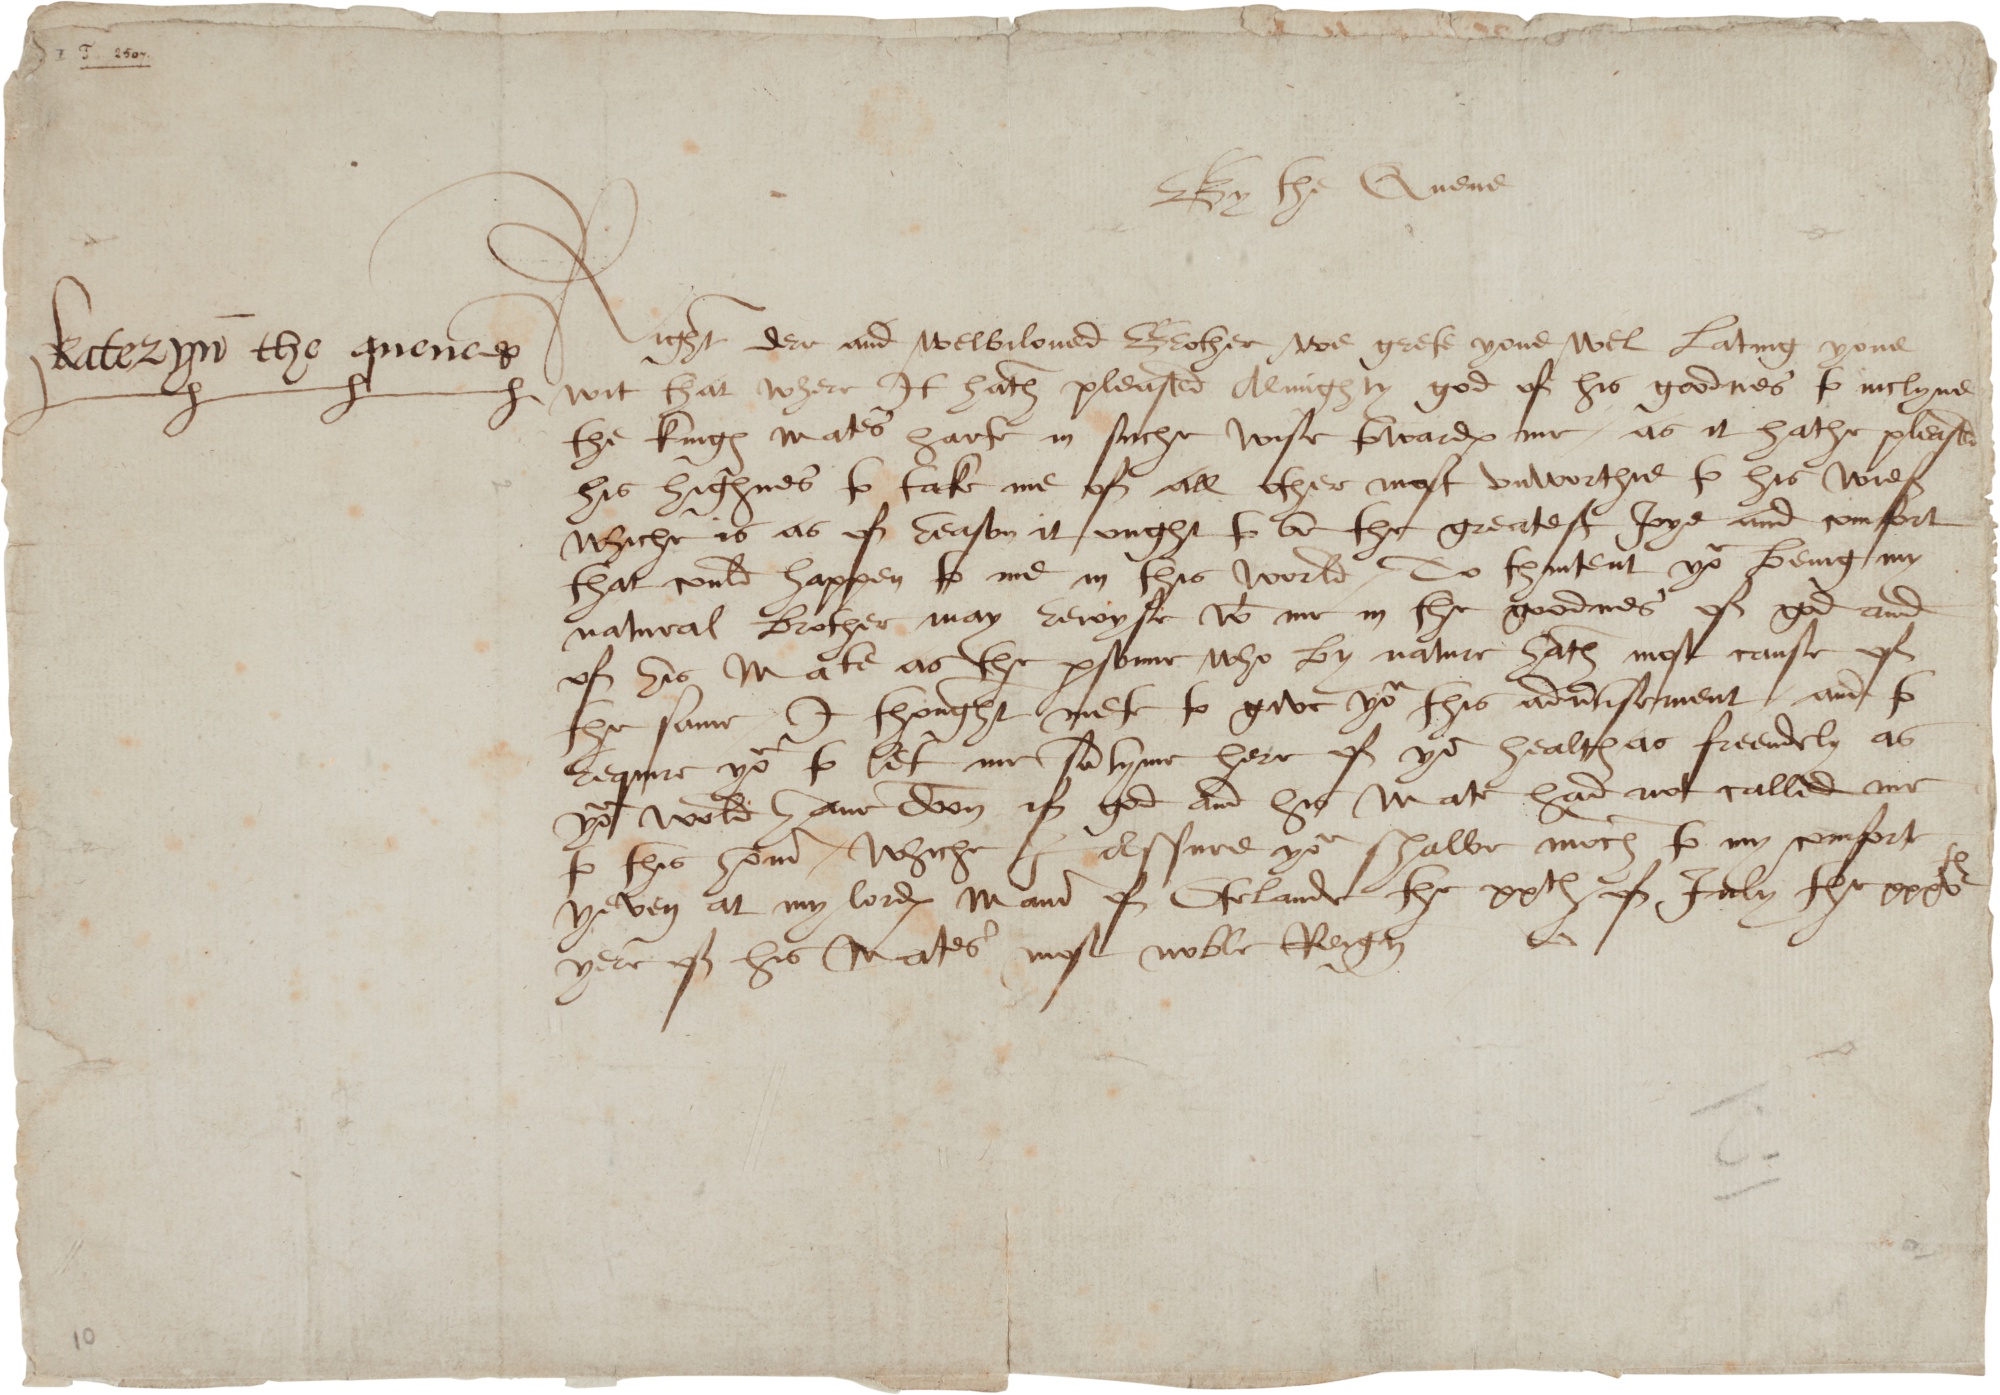 T. 2507.
By the Quene
Kateryn the quene KP
Right dere and welbiloved Brother, we grete youe wel Lating youe
wit that where It hath pleased Almighty god of his goodnes to inclyne
the kings Mates harte in suche wise towards me, as it hathe pleased
his highnes to take me of all other most unworthie to his wief
whiche is as of reason it ought to be the greatest Joye and comfort
that could happen to me in this world / To thintent yor being my
natural Brother may rejoyse wt me in the goodnes of god and
of his Mate as the psonne who by nature hath most cause of
the same I thought mete to give yor this advertisement, and to
require yor to let me sotyme here of yor health as freendely as
yor wold have doon if god and his Mate had not called me
to this honor / whiche I assure yor shalbe moch to my comfort
yeven at my lords Manor of Otelande the xxth of July the xxxvth
yere of his Mates most noble Reign
10